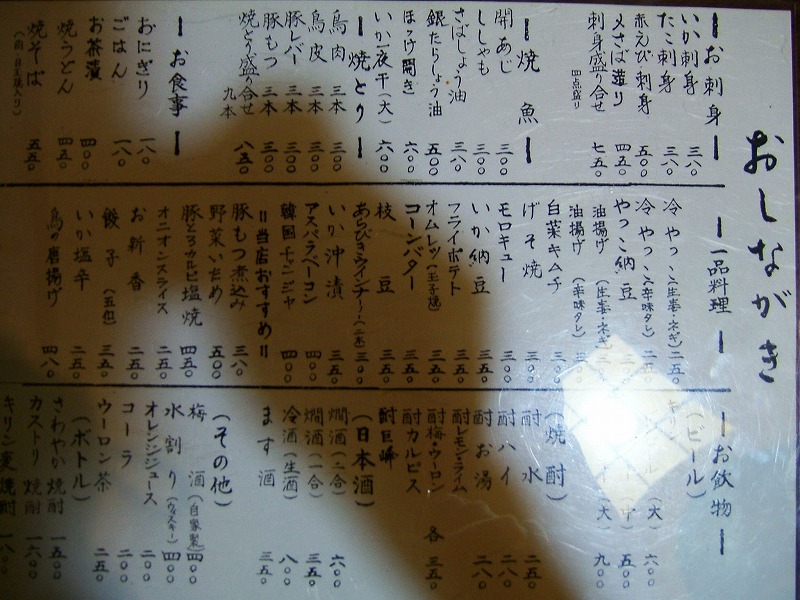 おしながき
ーお刺身ー
いか刺身 三八〇
たこ刺身 三八〇
赤えび刺身 五〇〇
〆さば造り 四五〇
刺身盛り合せ 四点盛り 七五〇
ー焼魚ー
開あじ 三〇〇
ししゃも 三〇〇
さばしょう油 三八〇
銀だらしょう油 五〇〇
ほっけ開き 六〇〇
いか一夜干(大) 六〇〇
ー焼とりー
鳥肉 三本 三〇〇
鳥皮 三本 三〇〇
豚レバー 三本 三〇〇
豚もつ 三本 三〇〇
焼とり盛り合せ 九本 八五〇
ーお食事ー
おにぎり 一八〇
ごはん 一八〇
お茶漬 四〇〇
焼うどん 四五〇
焼そば 五五〇
ー一品料理ー
冷やっこ(生姜・ネギ) 二五〇
冷やっこ(辛味タレ) 二五〇
やっこ納豆
油揚げ(生姜・ネギ)
油揚げ(辛味タレ) 三〇〇
白菜キムチ 三〇〇
げそ焼 三〇〇
モロキュー 三〇〇
いか納豆 三五〇
フライポテト 三五〇
オムレツ(玉子焼) 三五〇
コーンバター 三五〇
枝豆 三五〇
あらびきウインナー(二本) 三〇〇
いか沖漬 三五〇
アスパラベーコン 四〇〇
韓国チャンジャ 四〇〇
〓当店おすすめ〓
豚もつ煮込み 三八〇
野菜いため 五〇〇
豚とろカルビ塩焼 四五〇
オニオンスライス 二五〇
お新香 二五〇
餃子(五個) 三五〇
いか塩辛 二五〇
鳥の唐揚げ 四八〇
ーお飲物ー
(ビール)
(大) 六〇〇
(中) 五〇〇
(大) 九〇〇
(焼酎)
酎水 二五〇
酎ハイ 二八〇
酎お湯 二八〇
酎レモン・ライム
酎梅・ウーロン 各 三五〇
酎カルピス
酎巨峰
(日本酒)
燗酒(二合) 六〇〇
燗酒(一合) 三五〇
冷酒(生酒) 八〇〇
ます酒 三五〇
(その他)
梅酒(自家製) 四〇〇
水割り(ウィスキー) 四〇〇
オレンジジュース 二〇〇
コーラ 二〇〇
ウーロン茶 二五〇
(ボトル)
さわやか焼酎 一五〇〇
カストリ焼酎 一六〇〇
キリン麦焼酎 一八〇〇